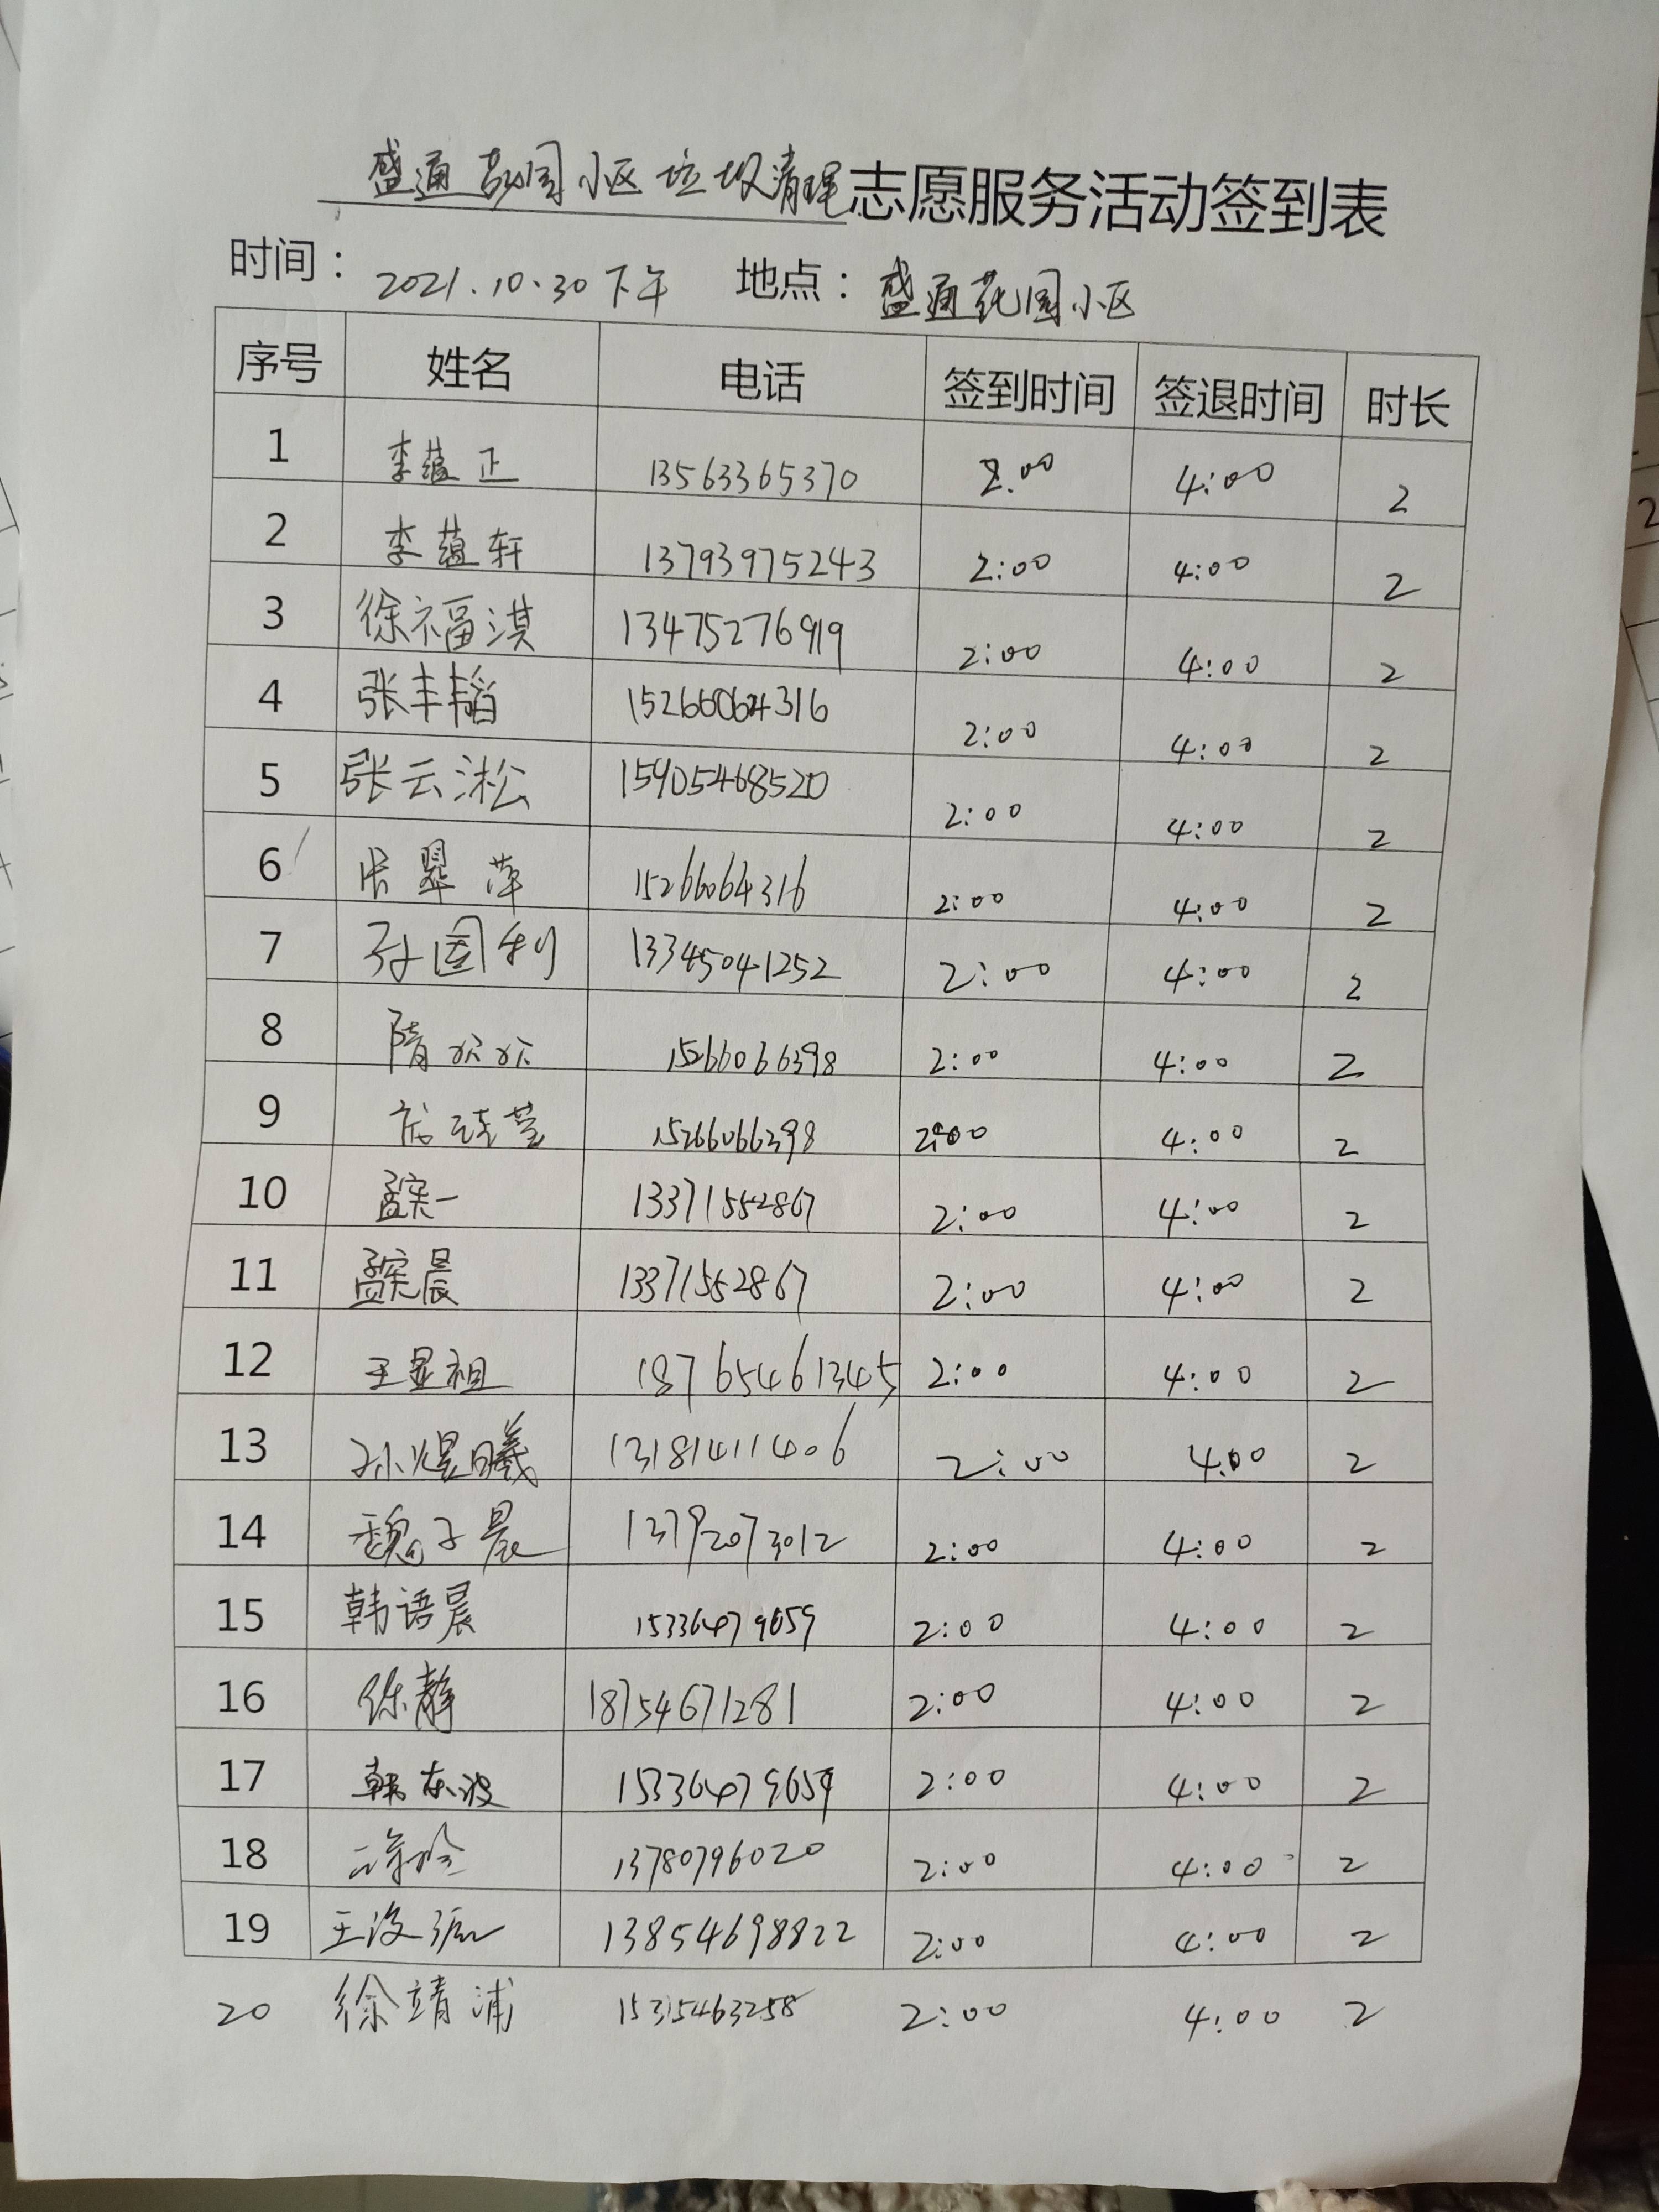 盛通花园小区垃圾清理志愿服务活动签到表
时间： 2021.10.30下午 地点： 盛通花园小区
序号 姓名 电话 签到时间 签退时间 时长
1 李蕴正 13563365370 2:00 4:00 2
2 李蕴轩 13793975243 2:00 4:00 2
3 徐福淇 13475276919 2:00 4:00 2
4 张丰韬 15266064316 2:00 4:00 2
5 张云淞 15905468520 2:00 4:00 2
6 张翠萍 15266064316 2:00 4:00 2
7 孙国利 13345041252 2:00 4:00 2
8 隋欣欣 15266066398 2:00 4:00 2
9 15266066398 2:00 4:00 2
10 孟宪一 13371552867 2:00 4:00 2
11 孟宪晨 13371552867 2:00 4:00 2
12 王显祖 18765461345 2:00 4:00 2
13 孙煜曦 13181411406 2:00 4:00 2
14 魏子晨 13792073012 2:00 4:00 2
15 韩语晨 15336479659 2:00 4:00 2
16 徐静 18754671281 2:00 4:00 2
17 韩东波 15336479659 2:00 4:00 2
18 13780796020 2:00 4:00 2
19 13854698822 2:00 4:00 2
20 徐靖浦 15315463258 2:00 4:00 2